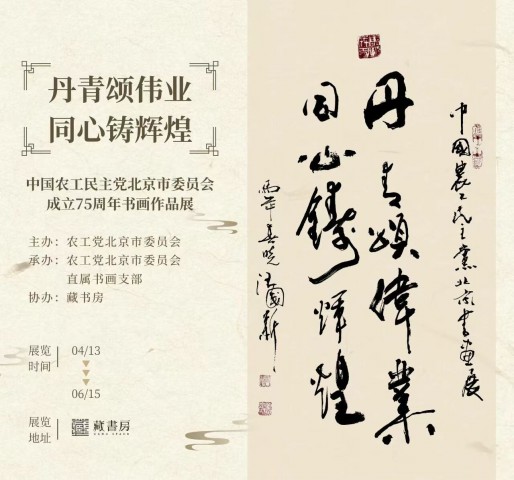 丹青颂伟业
同心铸辉煌
中国农工民主党北京市委员会
成立75周年书画作品展
主办：农工党北京市委员会
承办：农工党北京市委员会
直属书画支部
协办：藏书房
展览
时间
04/13
06/15
展览
地址
藏書房
中國農工民主黨北京書畫展
丹青頌偉業
同心鑄輝煌